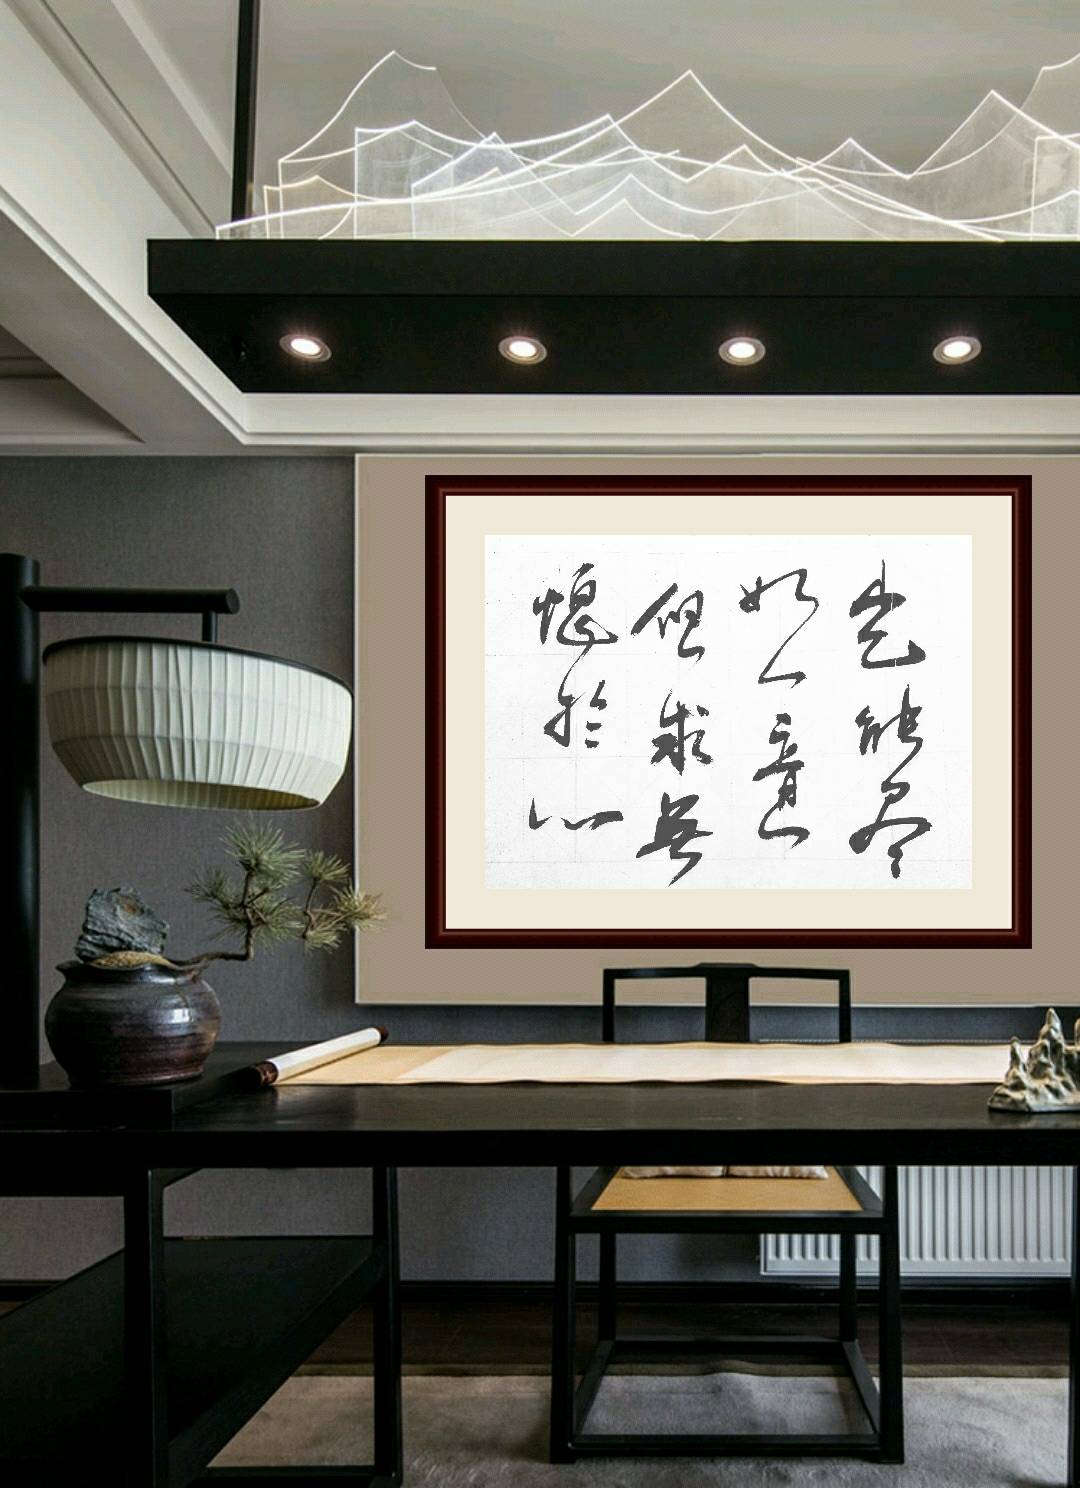 岂能尽
如人意
但求無
愧於心